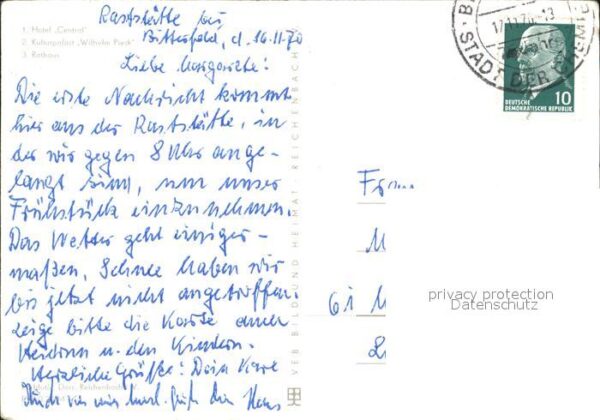 Raststätte bei
Bitterfeld, d. 16.11.70
1. Hotel „Central"
2. Kulturpalast „Wilhelm Pieck"
3. Rathaus
Liebe Margarete!
Die erste Nachricht kommt
hier aus der Raststätte, in
der wir gegen 8 Uhr ange-
langt sind, um unser
Frühstück einzunehmen.
Das Wetter geht einiger-
maßen, Schnee haben wir
bis jetzt nicht angetroffen.
Zeige bitte die Karte auch
Heidrun u. den Kindern.
Herzliche Grüße! Dein Karl
Auch von mir herzl. Grüße Dein Hans
VEB BILD UND HEIMAT REICHENBACH
STADT DER
DEUTSCHE
DEMOKRATISCHE REPUBLIK
10
Frau
M
61 M
privacy protection
Datenschutz